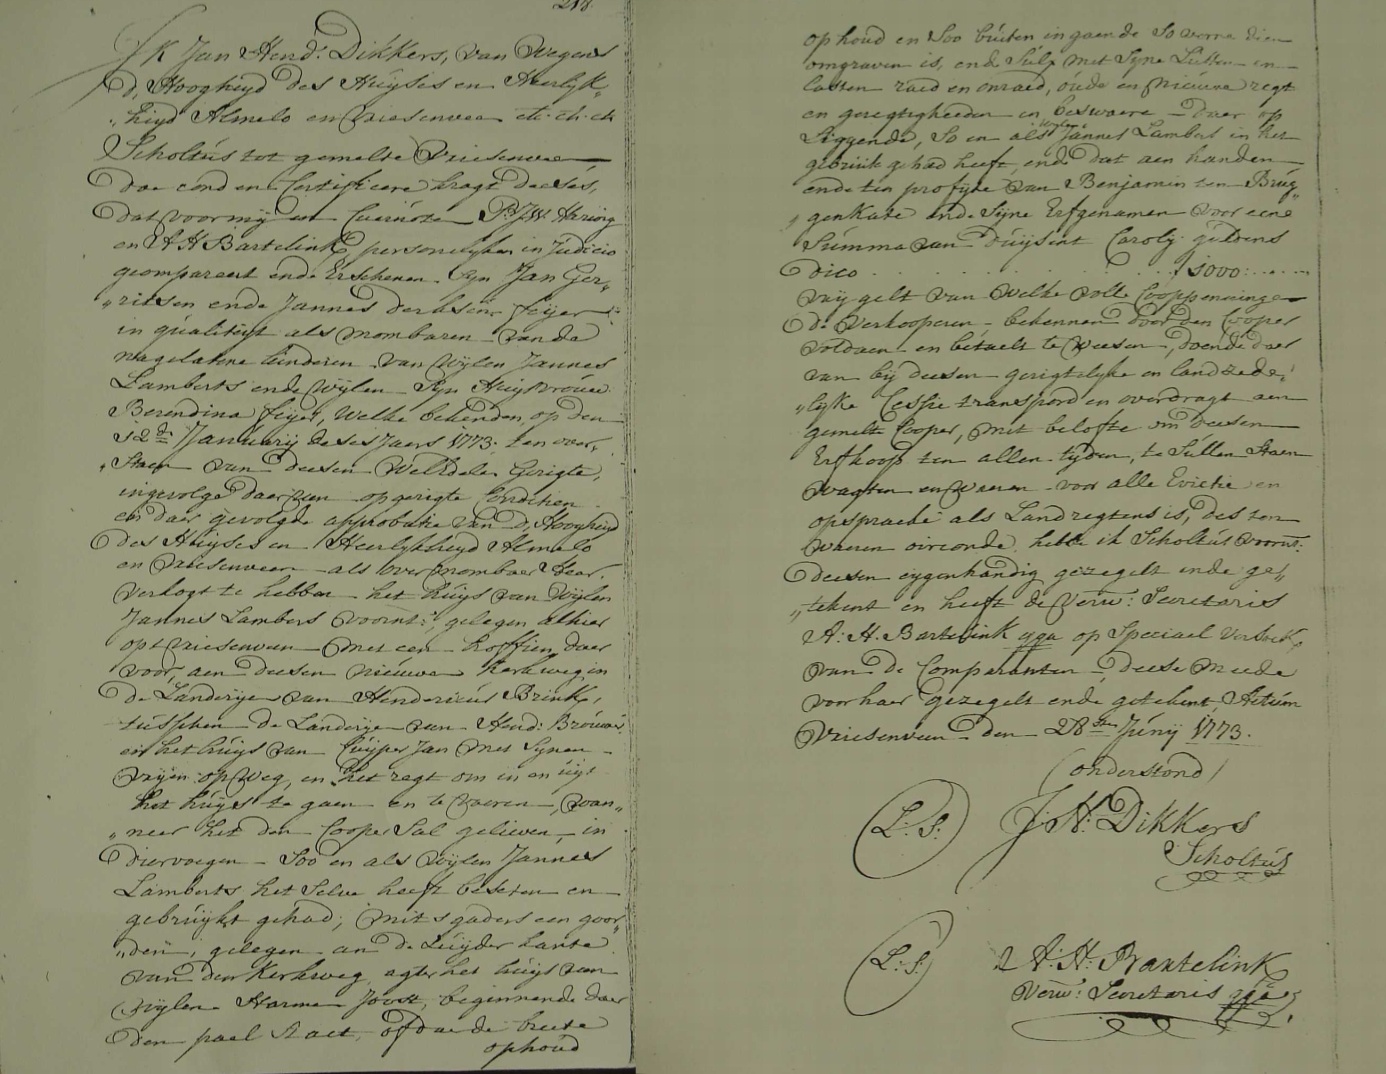 218
Ik Jan Hend: Dikkers, van Wegens
d, Hoogheyd des Huyses en Heerlyk„
„heyd Almelo en Vriesenveen etc. etc. etc
Scholtus tot gemelte Vriesenveen
Doe cond en Certificere kragt deeses,
dat voor my en Cuernoten P: J:W: Harwig
en A H Bartelink personelyken in Judicio
gecompareert ende Erschenen Syn Jan Ger„
„ritsen ende Jannes Derksen feyer
in qualiteyt als mombaren van de
nagelatene kinderen van Wylen Jannes
Lamberts ende Wylen Syn Huysvrouw
Berendina feyer, Welke bekenden, op den
12de January deses Jaers 1773. ten over„
„staen van deesen WelEdele Gerigte,
ingevolge daer van opgerigte Conditien
en daer gevolgde approbatie van d, Hoogheyd
des Huyses en Heerlykheyd Almelo
en Vriesenveen als Over mombaer Heer,
verkogt te hebben het huys van Wylen
Jannes Lambers voornt:, gelegen alhier
op't Vriesenveen met een hoffien daer
voor, aen deesen nieuwe kerkweg in
de Landerye van Hendericus Brink,
tusschen de Landerye van Hend: Brouwer
en het huys van Cuyper Jan met Synen
vryen opweg, en het regt om in en uyt
het huys te gaen en te vaeren, wan„
„neer het den Cooper Sal gelieven in
diervoegen Soo en als Wylen Jannes
Lamberts het Selve heeft beseten en
gebruykt gehad; mitsgaders een goor„
„den, gelegen an de Zuyder kante
van den Kerkweg agter het huys van
Wylen Harmen Joost, beginnende daer
den pael Staet, of daer de breete
ophoud
ophoud en Soo buiten in gaende So verre dien
omgraven is, ende Sulx met Syne Lusten en
lasten raed en onraed, oude en nieuwe regt
en geregtigheeden en beswaere daer op
Liggende, So en als Wylen Jannes Lambers in het
gebruik gehad heeft, ende dat aen handen
ende ten profyte van Benjamin ten Brug„
„genkate ende Syne Erfgenamen voor eene
Summa van duysent Caroly guldens
dico . . . . . . . . . . 1000: . . . .
vry gelt van Welke volle Cooppenningen
de Verkooperen bekennen door den Cooper
voldaen en betaelt te Weesen, doende daer
van by deesen gerigtelyke en landzede„
„lyke Cessie transpord en overdragt aen
gemelte Cooper, met belofte om deesen
Erfkoop ten allen tyden, te Sullen Staen
wagten en Waeren voor alle Evictie en
opspraeke als Landregtens is, des ten
waeren oirconde hebbe ik Scholtus voornt:
deesen eygenhandig gezegelt ende ge„
„tekent en heeft de Verw: Secretaris
A: H: Bartelink qqa op Speciael Versoek
van de Comparanten, deese meede
voor haer gezegelt ende getekent, Actum
Vriesenveen den 28sten Juny 1773.
(onderstond)
(L: S:) J: H: Dikkers
Scholtus
(L: S:) A: H: Bartelink
Verw: Secretaris qqa